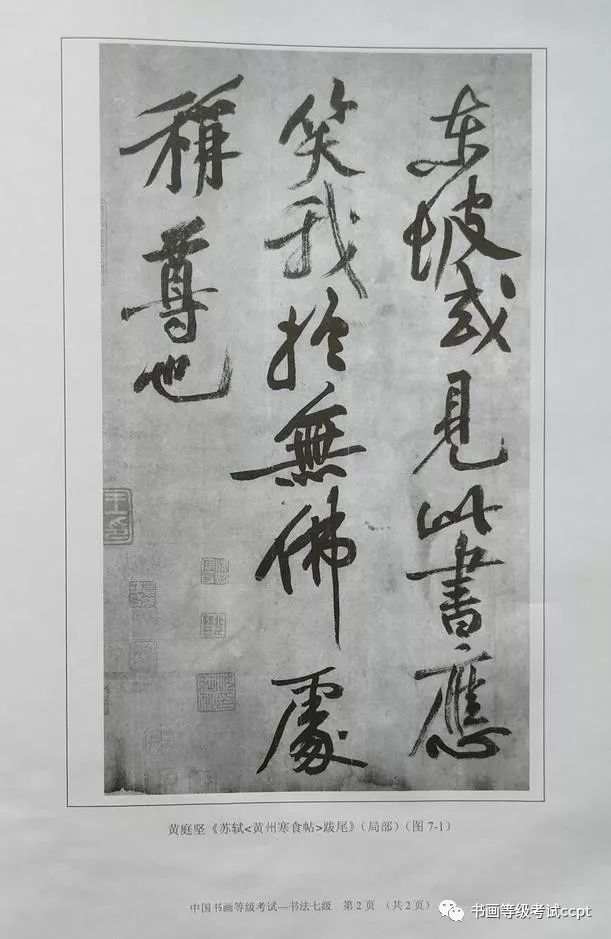 东坡或見此書應
笑我於無佛處
稱尊也
黄庭坚《苏轼<黄州寒食帖>跋尾》（局部）（图 7-1）
中国书画等级考试—书法七级 第 2 页 （共 2 页）
书画等级考试ccpt